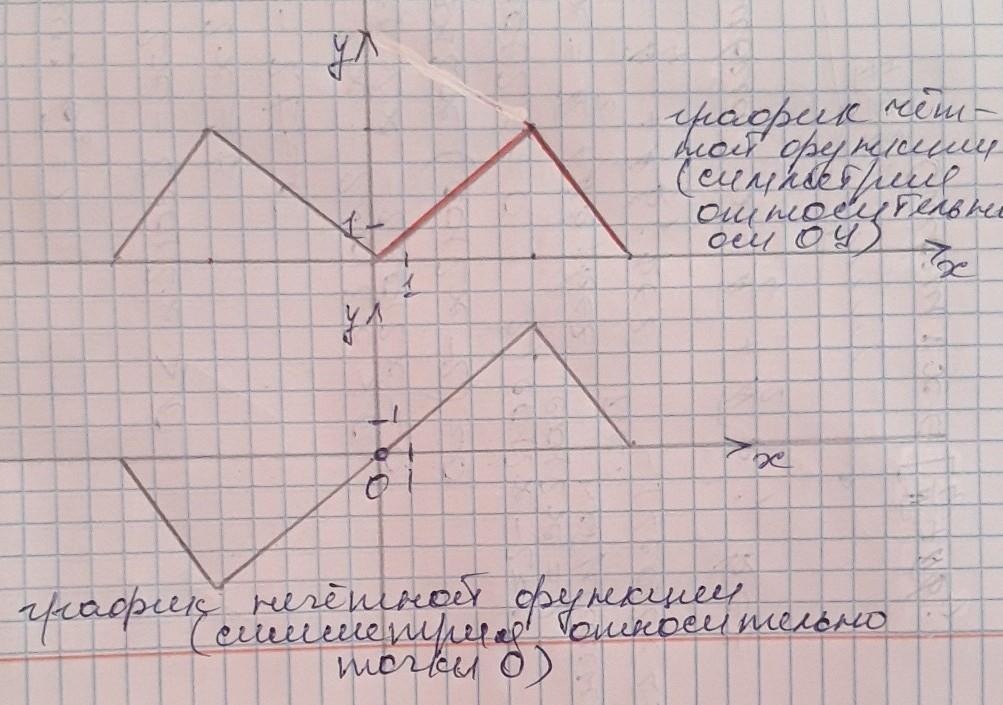 y
график чёт-
ной функции
(симметрия
относительно
оси ОУ)
1
1
x
y
1
x
0 1
график нечётной функции
(симметрия относительно
точки О)